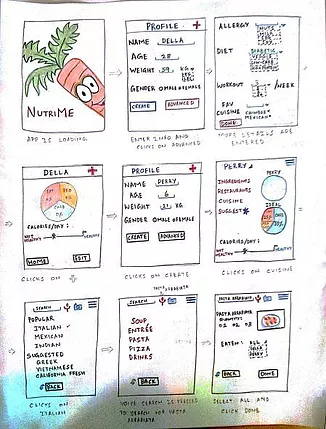 NUTRIME
APP IS LOADING
PROFILE
NAME DELLA
AGE
WEIGHT
KG
GENDER O MALE O FEMALE
CREATE ADVANCED
ENTER INFO AND
CLICKS ON ADVANCED
ALLERGY
NUTS
DIET
DIABETIC
VEGGIE
WORKOUT
/WEEK
FAV
CUISINE
CHINESE
MEXICAN
DONE
MORE DETAILS ARE
ENTERED
DELLA
CALORIES/DAY:
NOT HEALTHY
HEALTHY
HOME EDIT
CLICKS ON +
PROFILE
NAME PERRY
AGE 6
WEIGHT
KG
GENDER O MALE O FEMALE
CREATE ADVANCED
CLICKS ON CREATE
PERRY
INGREDIENTS
RESTAURANTS
CUISINE
SUGGEST
PERRY
IDEAL
CALORIES/DAY:
NOT HEALTHY
HEALTHY
CLICKS ON CUISINE
SEARCH
POPULAR
ITALIAN
MEXICAN
INDIAN
SUGGESTED
GREEK
VIETNAMESE
CALIFORNIA FRESH
BACK
CLICKS ON
ITALIAN
SEARCH
SOUP
ENTRÉE
PASTA
PIZZA
DRINKS
BACK
VOICE SEARCH IS PRESSED
TO SEARCH FOR PASTA
ARRABIATA
PASTA ARRABIATA
PASTA ARRABIATA
QUANTITY:
EATEN:
BACK DONE
SELECT ALL AND
CLICK DONE